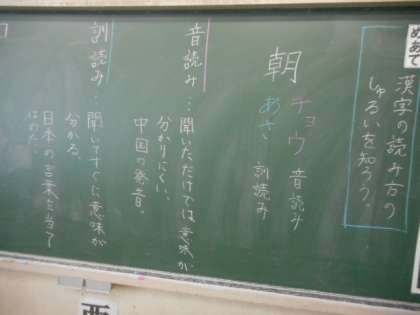 めあて
漢字の読み方の
しゅるいを知ろう。
朝
チョウ 音読み
あさ 訓読み
音読み…聞いただけでは意味が
分かりにくい。
中国の発音。
訓読み…聞いてすぐに意味が
分かる。
日本の言葉を当て
はめた。
西